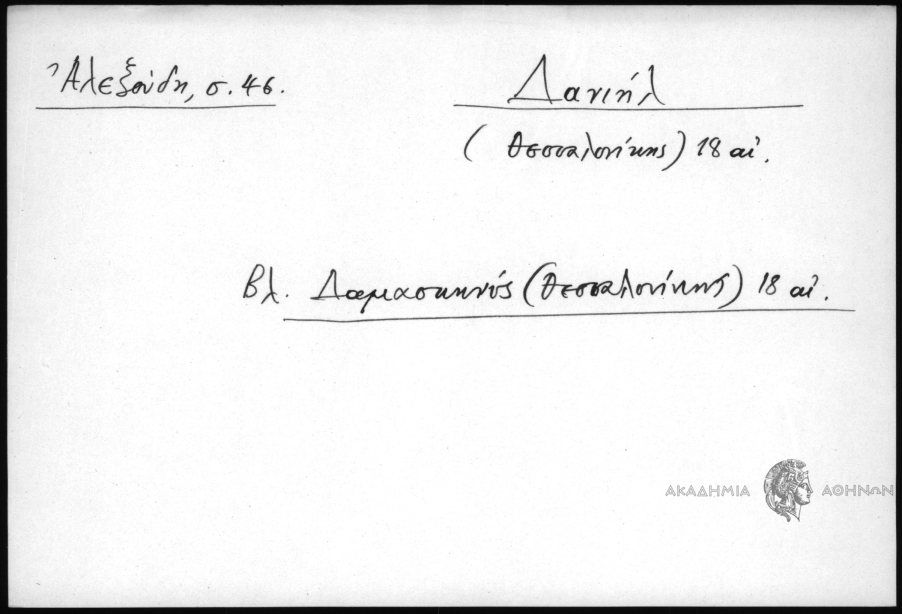 Ἀλεξούδη, σ. 46.
Δανιήλ
(Θεσσαλονίκης) 18 αἰ.
Βλ. Δαμασκηνός (Θεσσαλονίκης) 18 αἰ.
ΑΚΑΔΗΜΙΑ ΑΘΗΝΩΝ